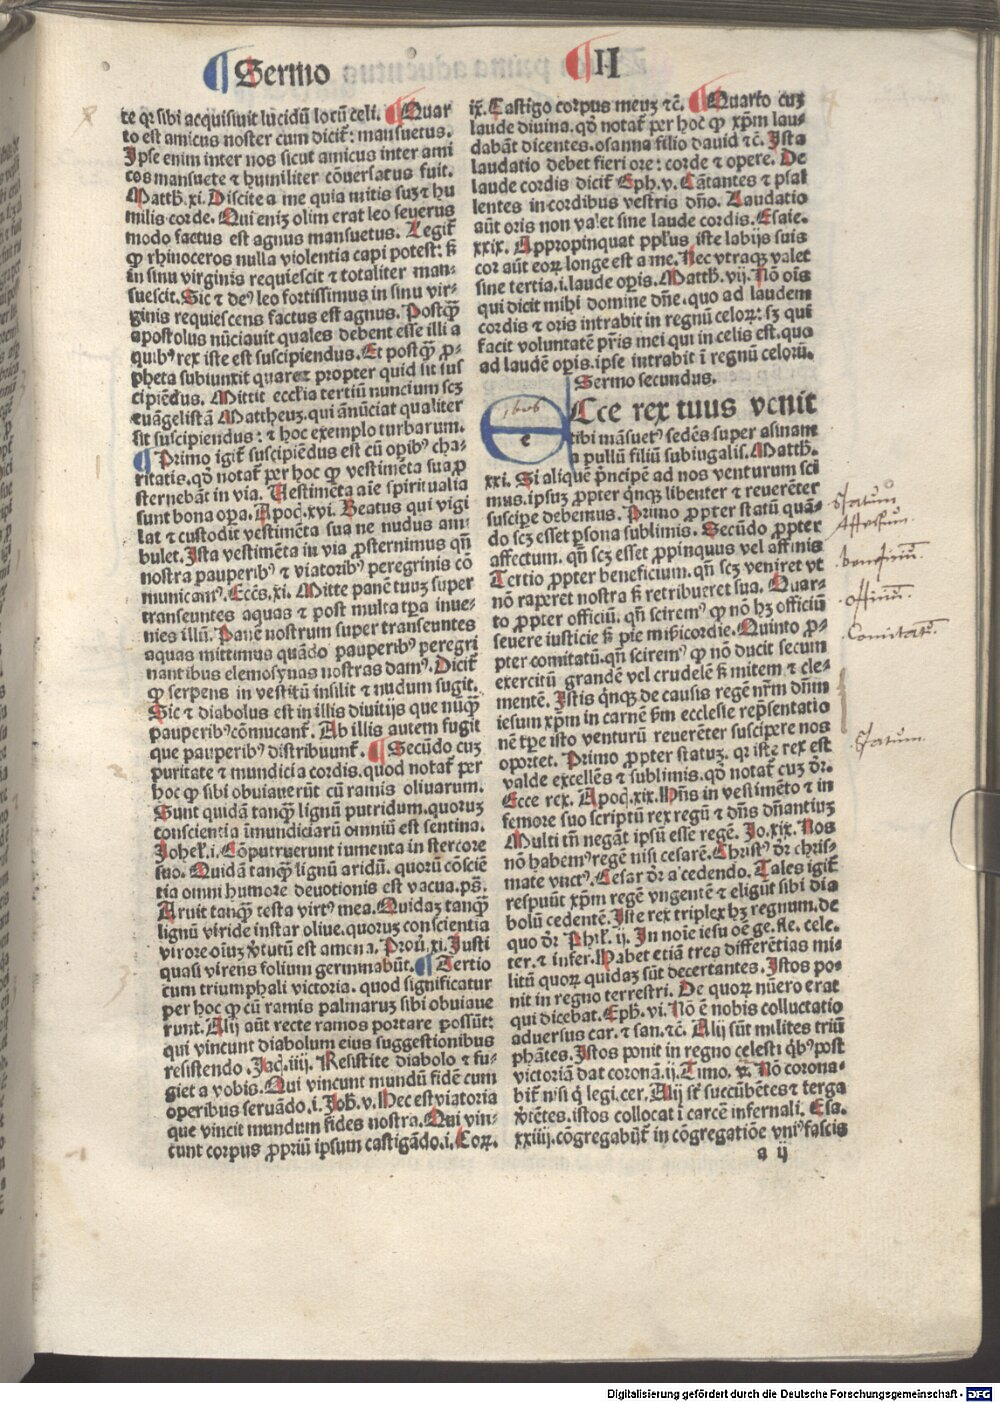 Sermo II
te qꝛ sibi acquisiuit lucidū locū celi. ¶ Quar
to est amicus noster cum dicit̄: mansuetus.
Ipse enim inter nos sicut amicus inter ami
cos mansuete ⁊ humiliter cōuersatus fuit.
Matth̄. xi. Discite a me quia mitis suꝫ ⁊ hu
milis corde. Qui eniꝫ olim erat leo seuerus
modo factus est agnus mansuetus. Legit̄
ꝙ rhinoceros nulla violentia capi potest: ſꝫ
in sinu virginis requiescit ⁊ totaliter man-
suescit. Sic ⁊ deꝰ leo fortissimus in sinu vir-
ginis requiescens factus est agnus. Postqꝫ̄
apostolus nūciauit quales debent esse illi a
quibꝰ rex iste est suscipiendus. Et postqꝫ̄ ꝓ-
pheta subiunxit quare ⁊ propter quid sit sus
cipiēdus. Mittit eccłia tertiū nuncium scꝫ
euāgelistā Mattheuꝫ. qui ānūciat qualiter
sit suscipiendus: ⁊ hoc exemplo turbarum.
¶ Primo igit̄ suscipiēdus est cū opibꝰ cha-
ritatis. qd̄ notat̄ per hoc ꝙ vestimēta sua ꝓ
sternebāt in via. Uestimēta aīe spiritualia
sunt bona opa. Apoc̄. xvi. Beatus qui vigi
lat ⁊ custodit vestimēta sua ne nudus am-
bulet. Ista vestimēta in via ꝓsternimus qn̄
nostra pauperibꝰ ⁊ viatoribꝰ peregrinis cō
municamꝰ. Ecc̄s. xi. Mitte panē tuuꝫ super
transeuntes aquas ⁊ post multa tꝑa inue-
nies illū. Panē nostrum super transeuntes
aquas mittimus quādo pauperibꝰ peregri
nantibus elemosynas nostras damꝰ. Dicit̄
ꝙ serpens in vestitū insilit ⁊ nudum fugit.
Sic ⁊ diabolus est in illis diuitijs que nūqꝫ̄
pauperibꝰ cōmucant̄. Ab illis autem fugit
que pauperibꝰ distribuunt̄. ¶ Secūdo cuꝫ
puritate ⁊ mundicia cordis. quod notat̄ per
hoc ꝙ sibi obuiauerūt cū ramis oliuarum.
Sunt quidā tanqꝫ̄ lignū putridum. quoruꝫ
conscientia īmundiciarū omniū est sentina.
Johel̄. i. Cōputruerunt iumenta in stercore
suo. Quidā tanqꝫ̄ lignū aridū. quorū cōsciē
tia omni humore deuotionis est vacua. ps̄.
Aruit tanqꝫ̄ testa virtꝰ mea. Quidaꝫ tanqꝫ̄
lignū viride instar oliue. quoruꝫ conscientia
virore oīuꝫ v̓tutū est amena. Prou̓. xi. Justi
quasi virens folium germinabūt. ¶ Tertio
cum triumphali victoria. quod significatur
per hoc ꝙ cū ramis palmaruꝫ sibi obuiaue
runt. Alij aūt recte ramos portare possūt:
qui vincunt diabolum eius suggestionibus
resistendo. Jac̄. iiij. Resistite diabolo ⁊ fu-
giet a vobis. Qui vincunt mundū fidē cum
operibus seruādo. i. Joh̄. v. Hec est victoria
que vincit mundum fides nostra. Qui vin-
cunt corpus ꝓpriū ipsum castigādo. i. Coꝝ.
ix. Castigo corpus meuꝫ ⁊c̄. ¶ Quarto cuꝫ
laude diuina. qd̄ notat̄ per hoc ꝙ xp̄m lau-
dabāt dicentes. osanna filio dauid ⁊c̄. Ista
laudatio debet fieri ore: corde ⁊ opere. De
laude cordis dicit̄ Eph. v. Cātantes ⁊ psal
lentes in cordibus vestris dn̄o. Laudatio
aūt oris non valet sine laude cordis. Esaie.
xxix. Appropinquat ppl̄us iste labijs suis
cor aūt eoꝝ longe est a me. Nec vtraqꝫ valet
sine tertia. i. laude opis. Matth̄. vij. Nō oīs
qui dicit mihi domine dn̄e. quo ad laudem
cordis ⁊ oris intrabit in regnū celoꝝ: sꝫ qui
facit voluntatē pr̄is mei qui in celis est. quo
ad laudē opis. ipse intrabit ī regnū celorū.
Sermo secundus.
Ecce rex tuus venit
tibi māsuetꝰ sedēs super asinam
⁊ pullū filiū subiugalis. Matth̄.
xxi. Si aliquē pͥncipē ad nos venturum sci
mus. ipsuꝫ propter qͥnqꝫ libenter ⁊ reuerēter
suscipe debemus. Primo propter statū quā-
do scꝫ esset ꝑsona sublimis. Secūdo propter
affectum. qn̄ scꝫ esset ꝓpinquus vel affinis
Tertio propter beneficium. qn̄ scꝫ veniret vt
nō raperet nostra sꝫ retribueret sua. Quar-
to propter officiū. qn̄ sciremꝰ ꝙ nō hꝫ officiū
seuere iusticie sꝫ pie mīsericordie. Quinto ꝓ-
pter comitatū. qn̄ sciremꝰ ꝙ nō ducit secum
exercitū grandē vel crudelē sꝫ mitem ⁊ cle-
mentē. Istis qͥnqꝫ de causis regē nr̄m dn̄m
iesum xp̄m in carnē ẜm ecclesie repn̄tatio
nē tꝑe isto venturū reuerēter suscipere nos
oportet. Primo ꝓpter statuꝫ. qꝛ iste rex est
valde excellēs ⁊ sublimis. qd̄ notat̄ cuꝫ dr̄.
Ecce rex. Apoc̄. xix. Hn̄s in vestimēto ⁊ in
femore suo scriptū rex regū ⁊ dn̄s dn̄antiuꝫ
Multi tn̄ negāt ipsū esse regē. Jo. xix. Nos
nō habemꝰ regē nisi cesarē. Christꝰ dr̄ chris-
mate vnctꝰ. Cesar dr̄ a cedendo. Tales igit̄
respuūt xp̄m regē vngentē ⁊ eligūt sibi dia
bolū cedentē. Iste rex triplex hꝫ regnum. de
quo dr̄ Phil̄. ij. In noīe iesu oē ge. fle. cele.
ter. ⁊ infer. Habet etiā tres differētias mi-
litū quoꝝ quidaꝫ sūt decertantes. Istos po-
nit in regno terrestri. De quoꝝ nūero erat
qui dicebat. Eph̄. vi. Nō ē nobis colluctatio
aduersus car. ⁊ san. ⁊c̄. Alij sūt milites triū
phātes. Istos ponit in regno celesti qͥbꝰ post
victoriā dat coronā. ij. Timo. ij. Nō corona-
bit̄ nisi qͥ legi. cer. Alij st̄ succūbētes ⁊ terga
v̓tētes. istos collocat ī carcē infernali. Esa.
xxiiij. cōgregabūt̄ in cōgregatiōe vniꝰ fascis
a ij
statum
Affectum.
beneficiū.
officium.
Comitatū.
Statum.
e
Digitalisierung gefördert durch die Deutsche Forschungsgemeinschaft - DFG